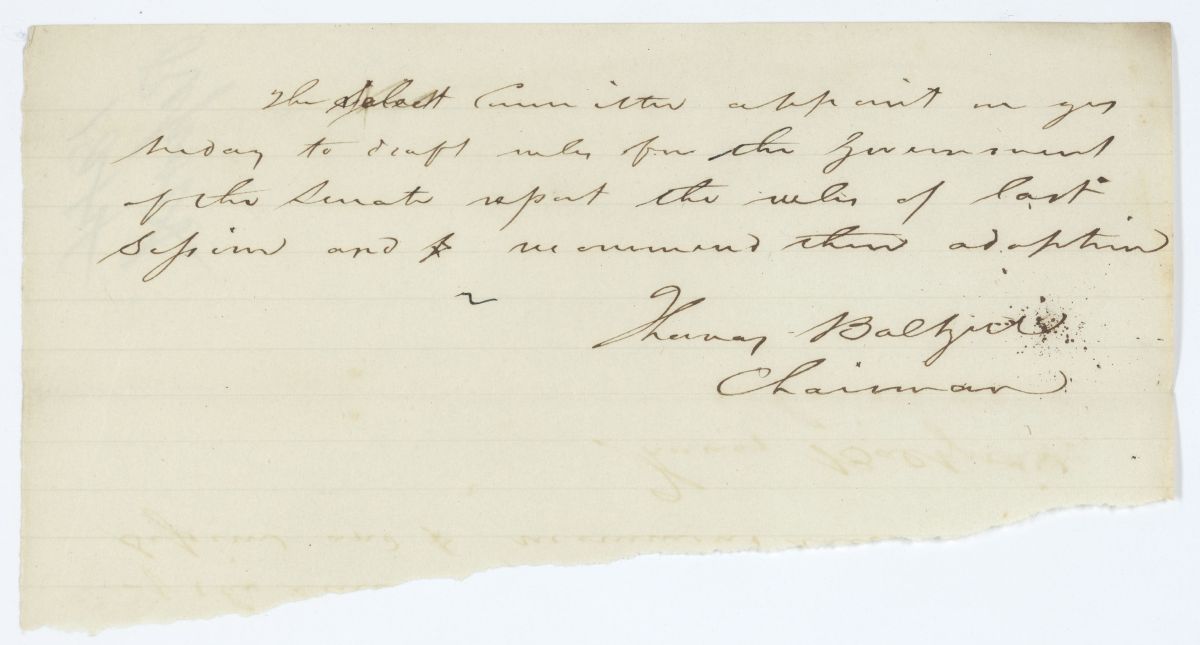 The select Committee appoint on yes
terday to draft rules for the Government
of the Senate report the rules of last
Session and recommend their adoption
Thomas Baltzell
Chairman